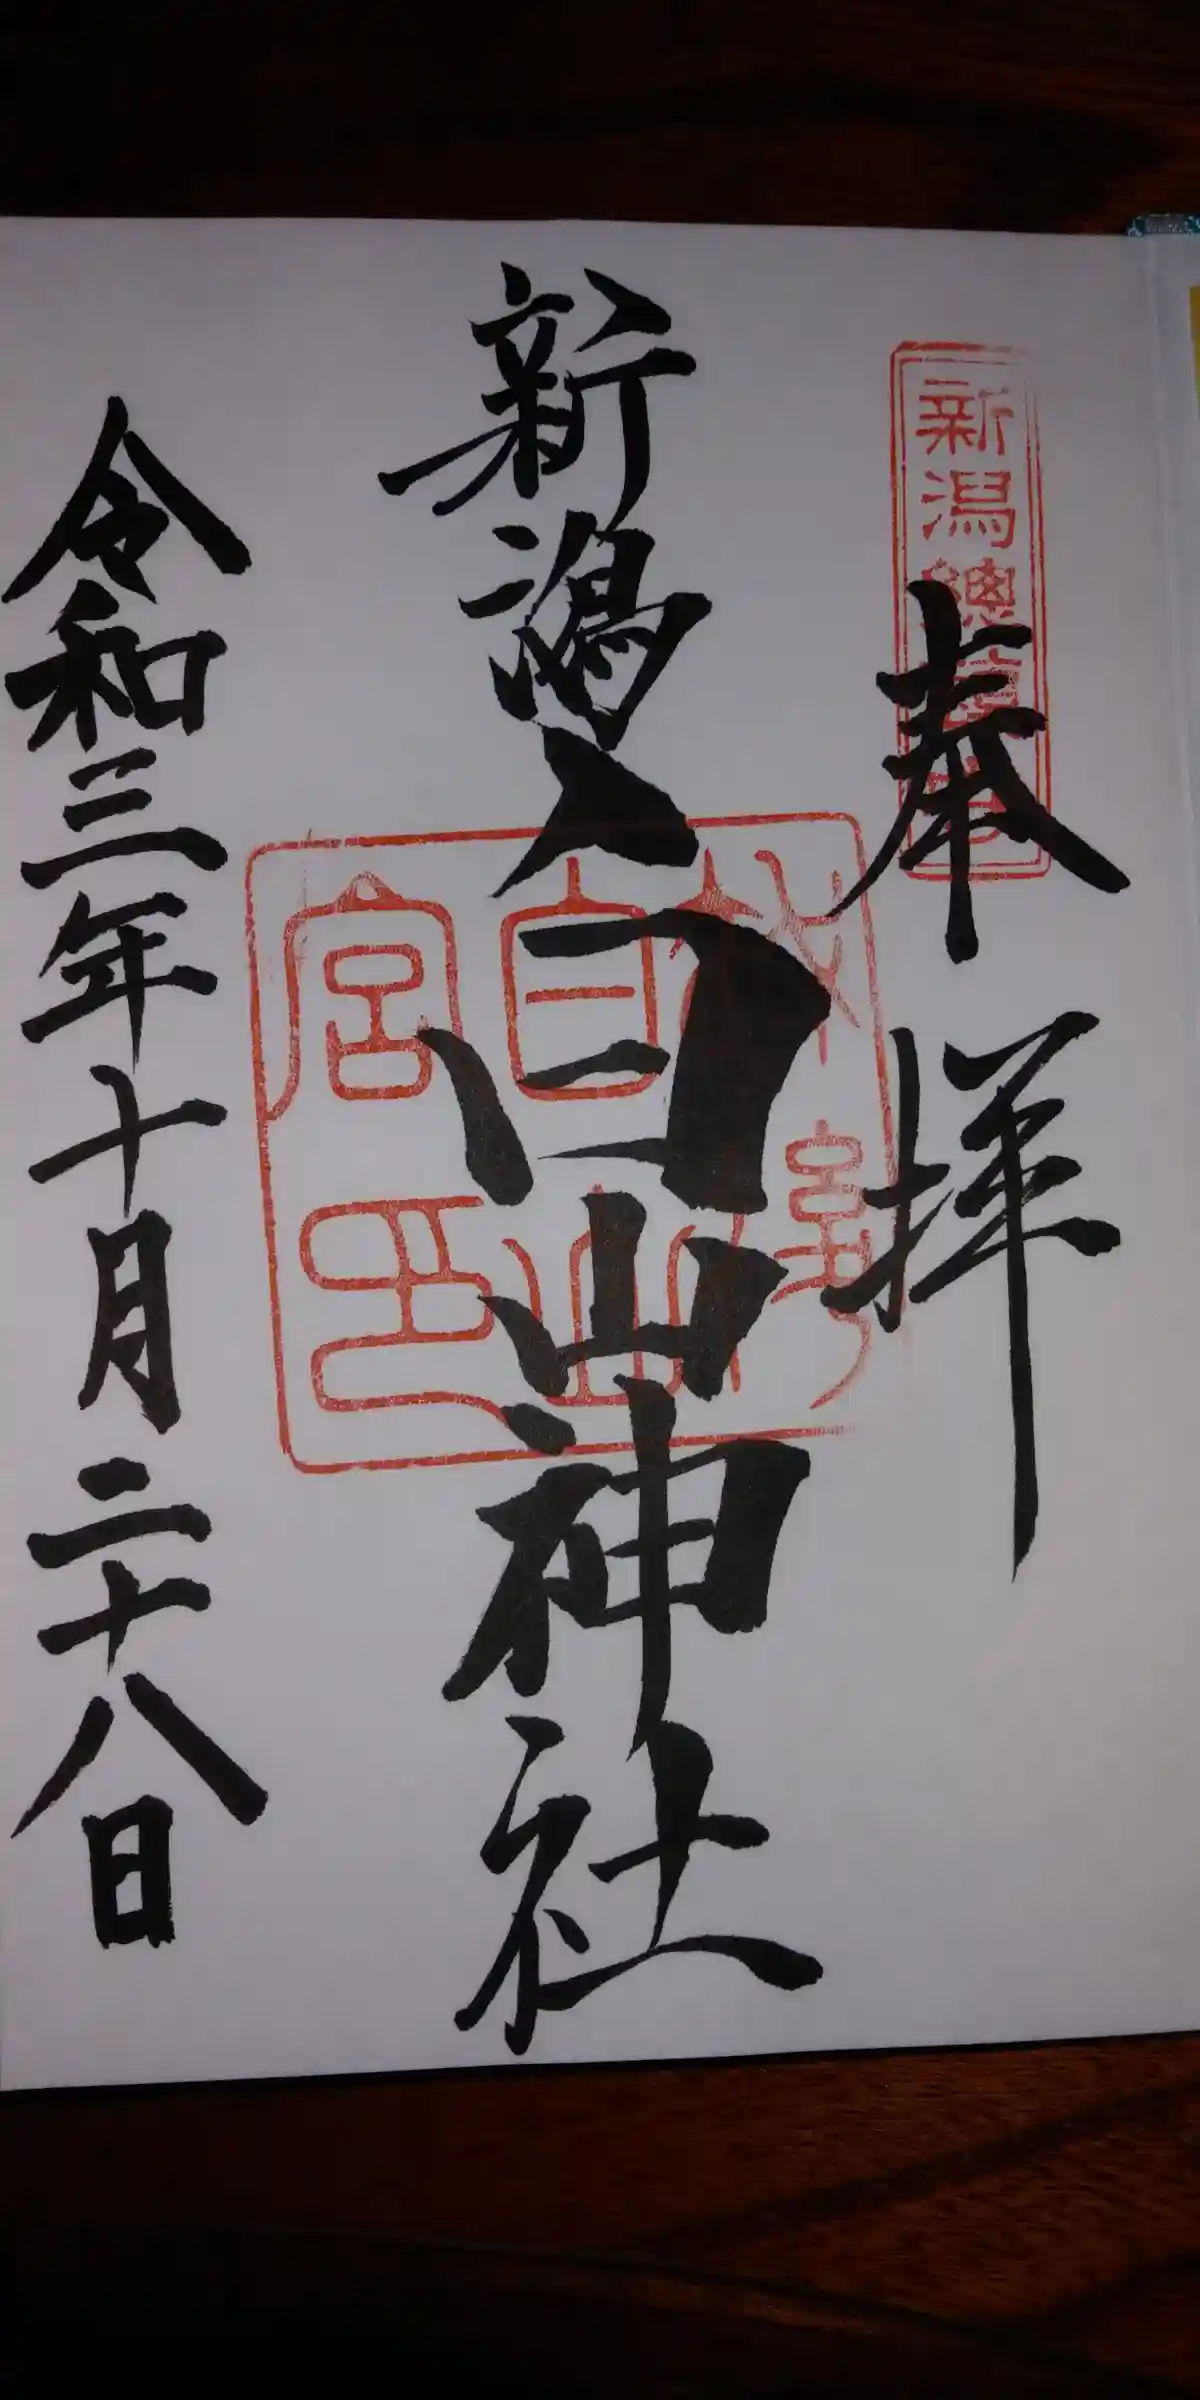 新潟總鎮守
奉拝
新潟白山神社
白山
宮印
令和三年十月二十八日